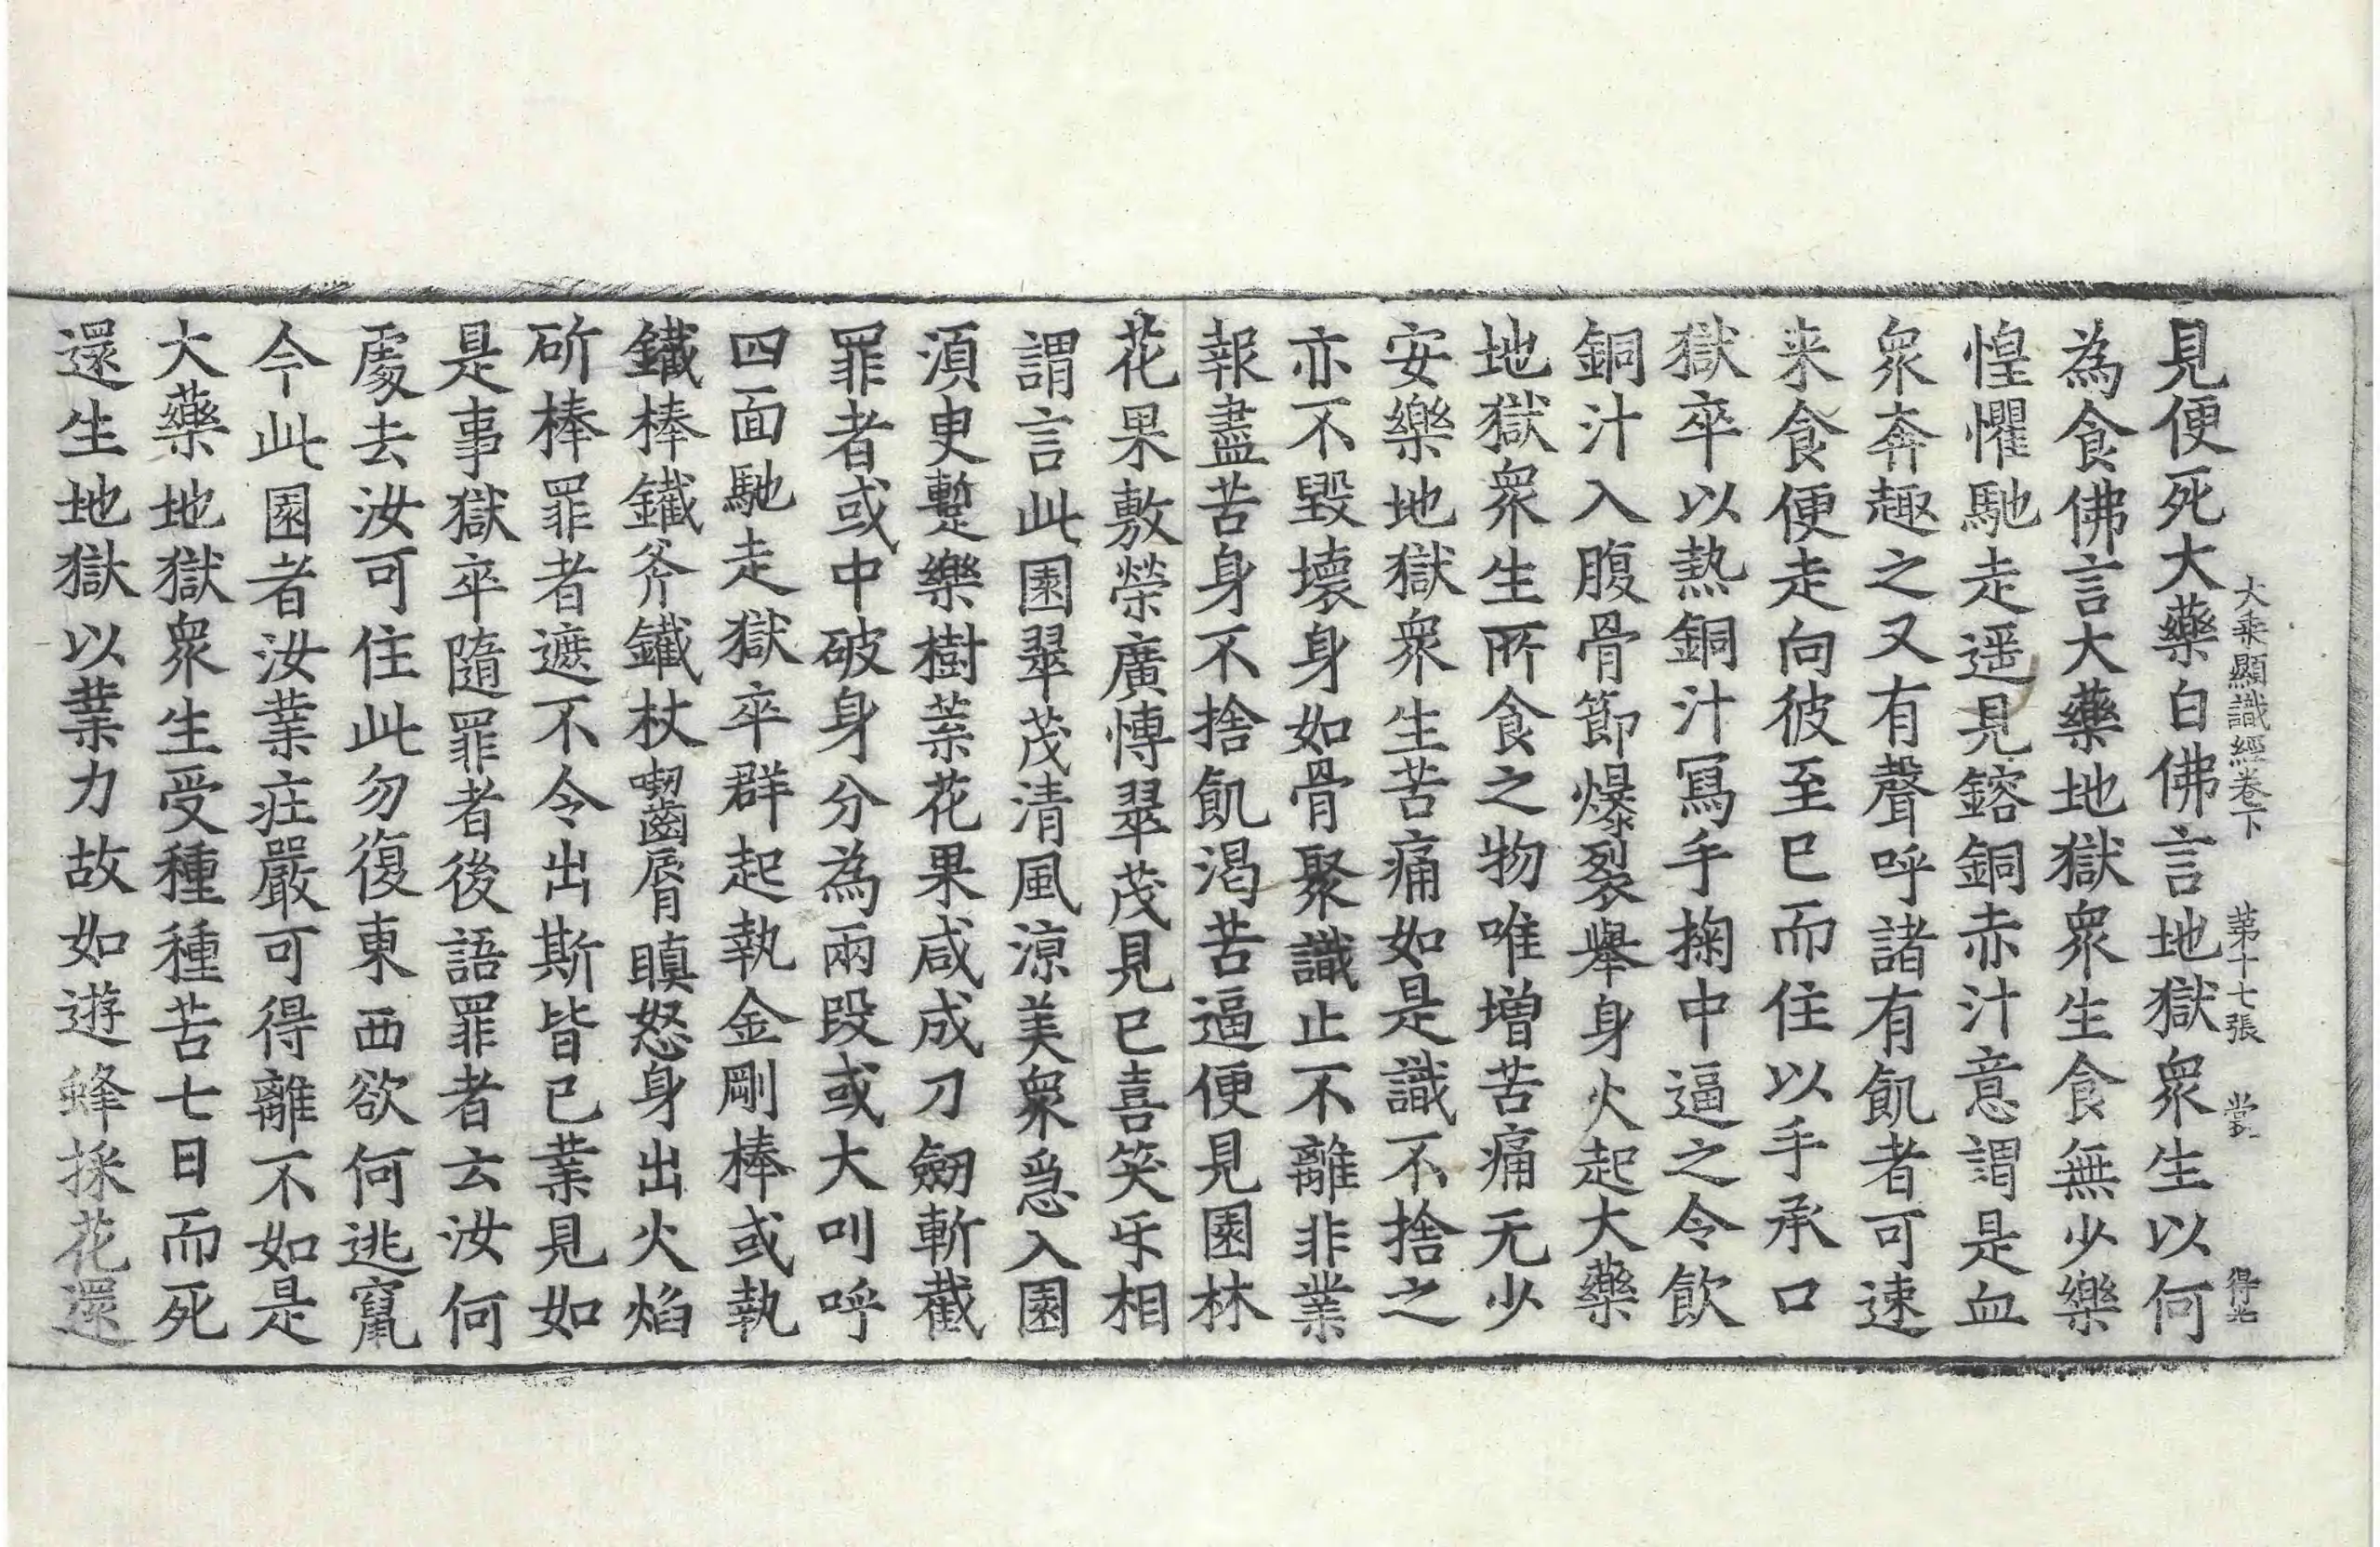 大乘顯識經卷下 第十七張 當 得
見便死大藥白佛言地獄衆生以何
為食佛言大藥地獄衆生食無少樂
惶懼馳走遥見鎔銅赤汁意謂是血
衆奔趣之又有聲呼諸有飢者可速
来食便走向彼至已而住以手承口
獄卒以熱銅汁寫手掬中逼之令飲
銅汁入腹骨節爆裂舉身火起大藥
地獄衆生所食之物唯增苦痛无少
安樂地獄衆生苦痛如是識不捨之
亦不毀壞身如骨聚識止不離非業
報盡苦身不捨飢渴苦逼便見園林
花果敷榮廣愽翠茂見已喜笑乐相
謂言此園翠茂清風涼美衆急入園
須臾蹔樂樹葉花果咸成刀劒斬截
罪者或中破身分為兩段或大叫呼
四面馳走獄卒群起執金剛棒或執
鐵棒鐵斧鐵杖囓脣瞋怒身出火焰
斫棒罪者遮不令出斯皆已業見如
是事獄卒隨罪者後語罪者云汝何
處去汝可住此勿復東西欲何逃竄
今此園者汝業庄嚴可得離不如是
大藥地獄衆生受種種苦七日而死
還生地獄以業力故如遊蜂採花還